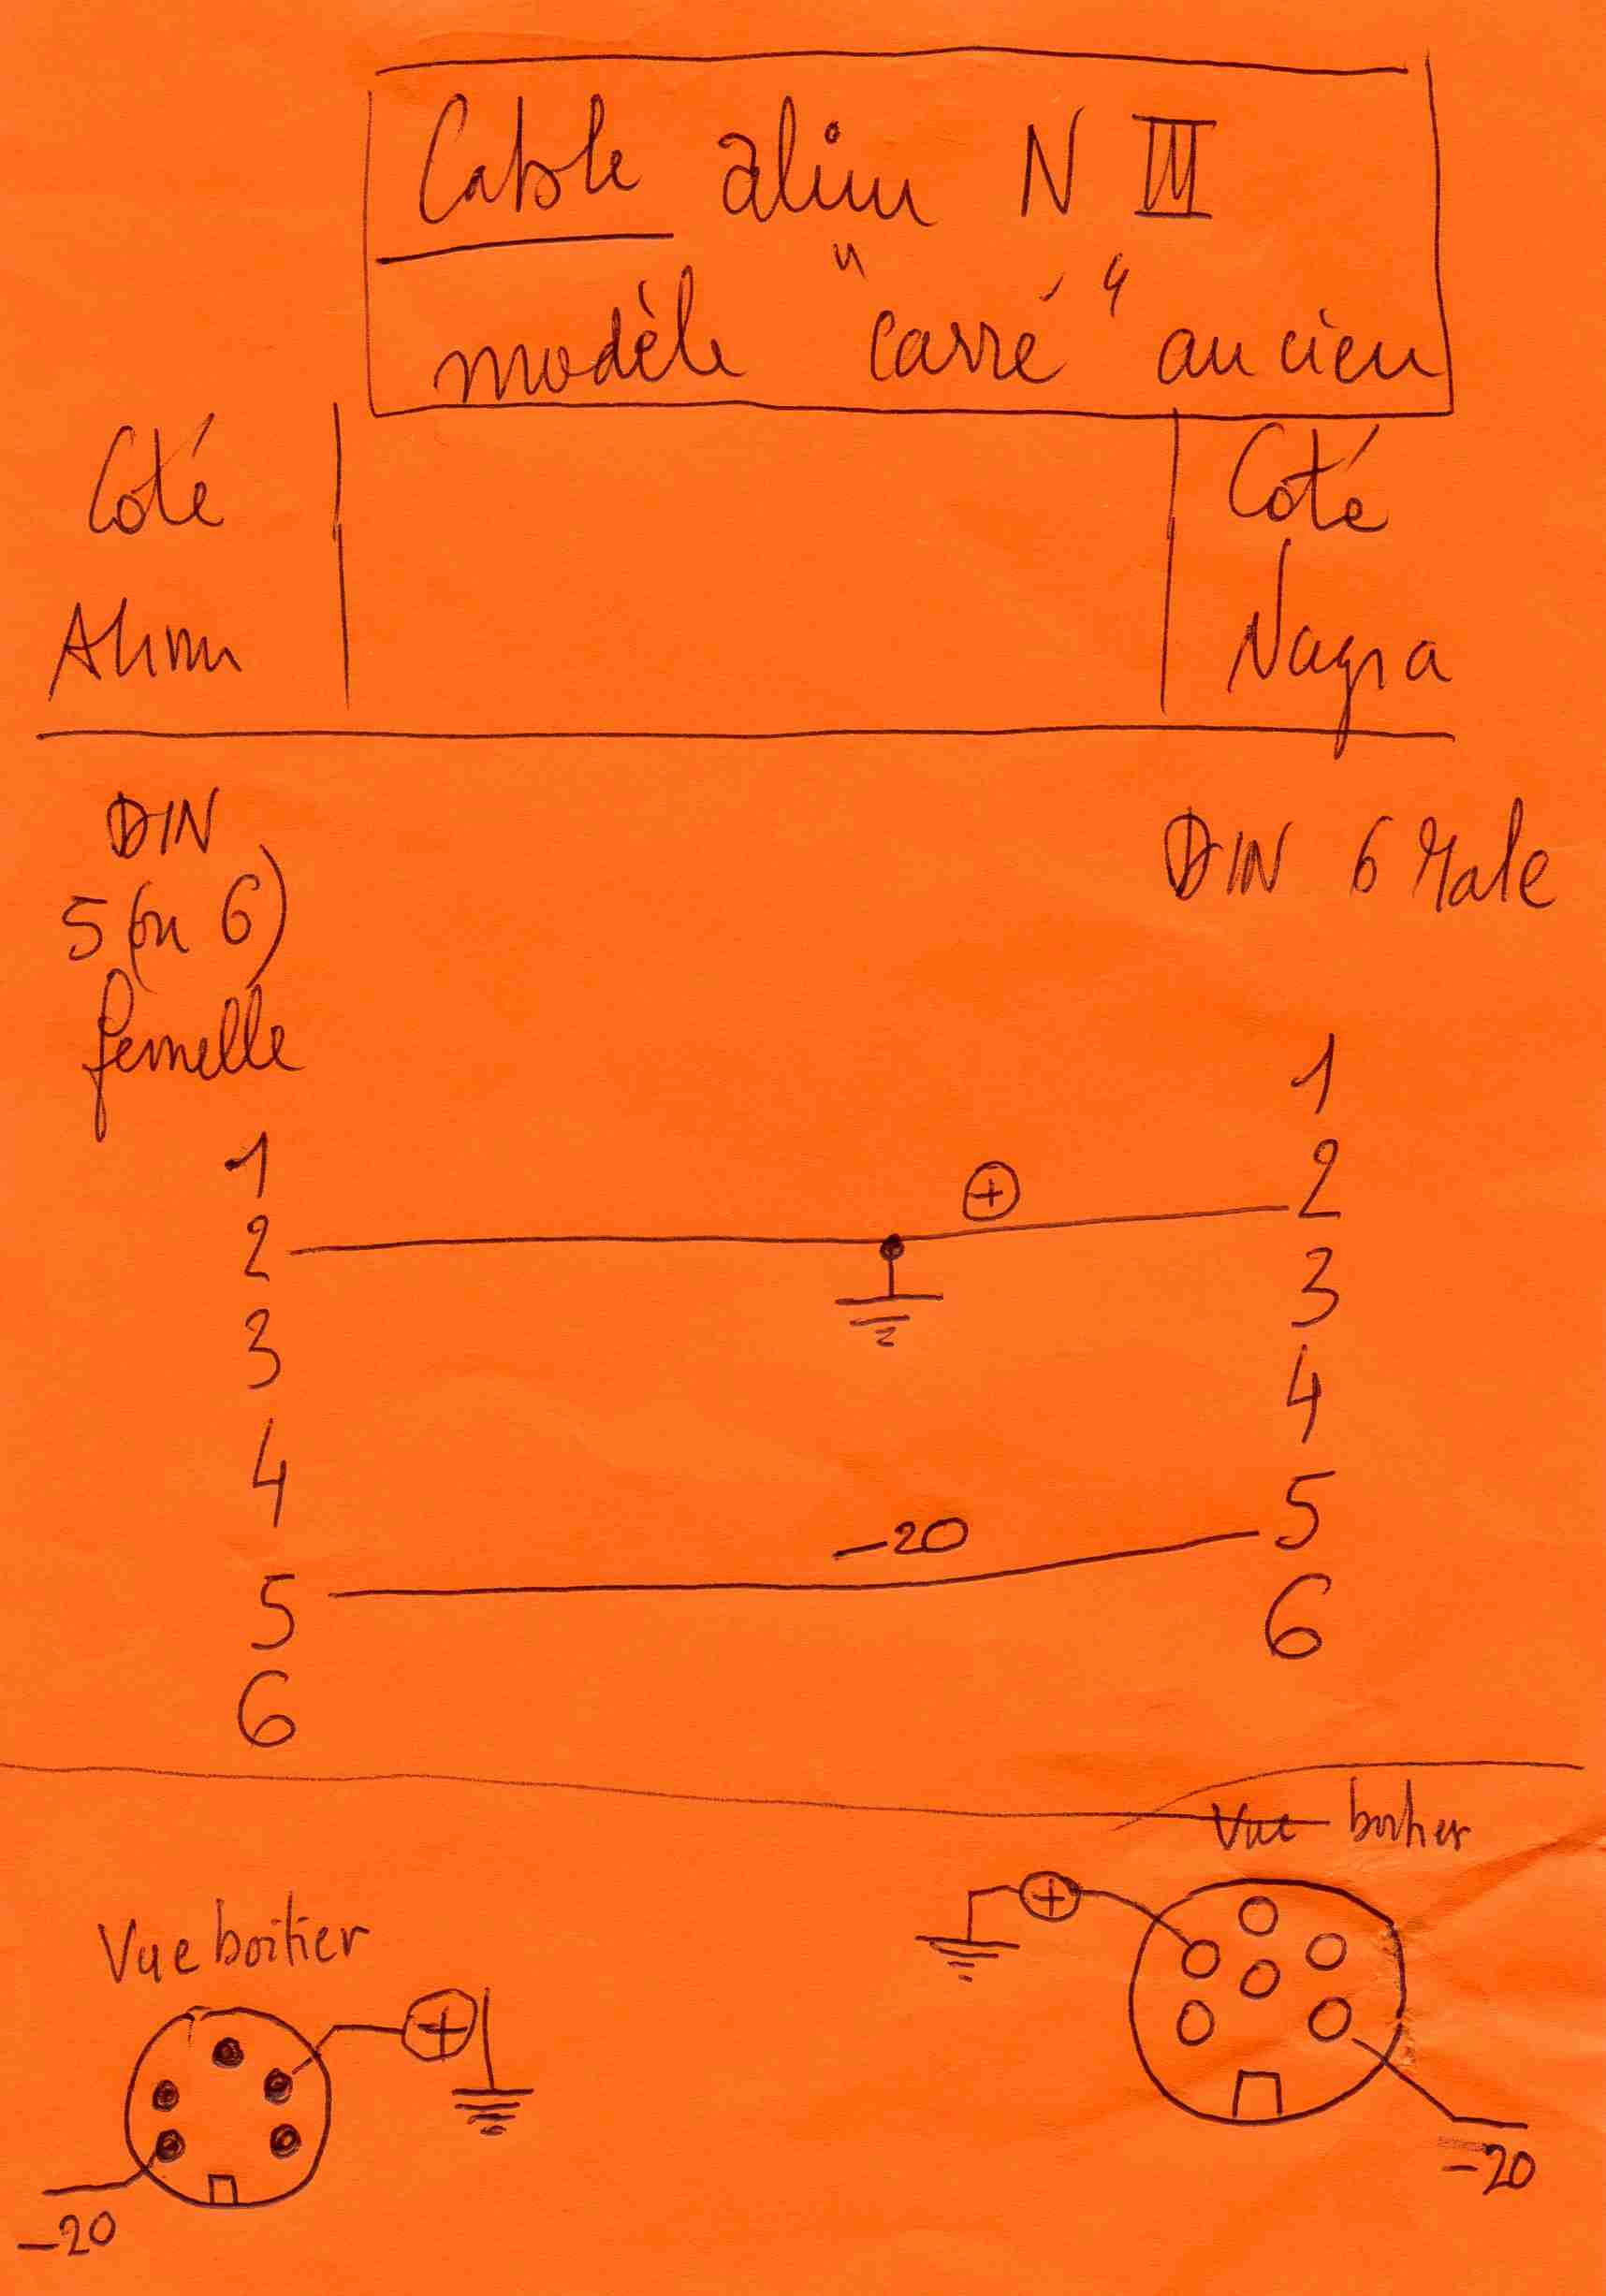 Cable alim N III
modèle "carré" ancien
Coté
Alim
Coté
Nagra
DIN
5 (ou 6)
femelle
DIN 6 Male
1
2
3
4
5
6
1
2
3
4
5
6
+
-20
Vue boitier
+
-20
Vue boitier
+
-20